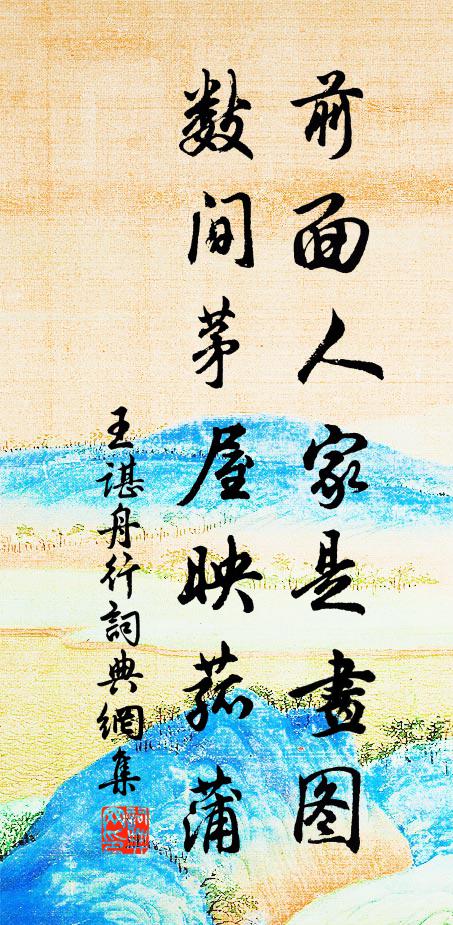 前面人家是畫图
数間茅屋映菰蒲
王諶舟行詞典網集